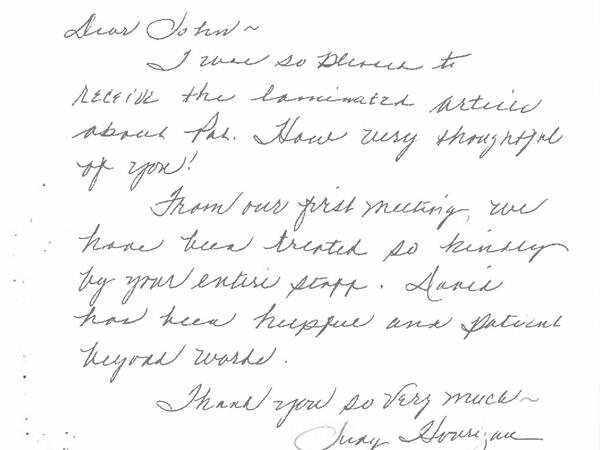 Dear John ~
I was so pleased to
receive the laminated article
about Pat. How very thoughtful
of you!
From our first meeting, we
have been treated so kindly
by your entire staff. David
has been helpful and patient
beyond words.
Thank you so very much ~
Judy Hourigan